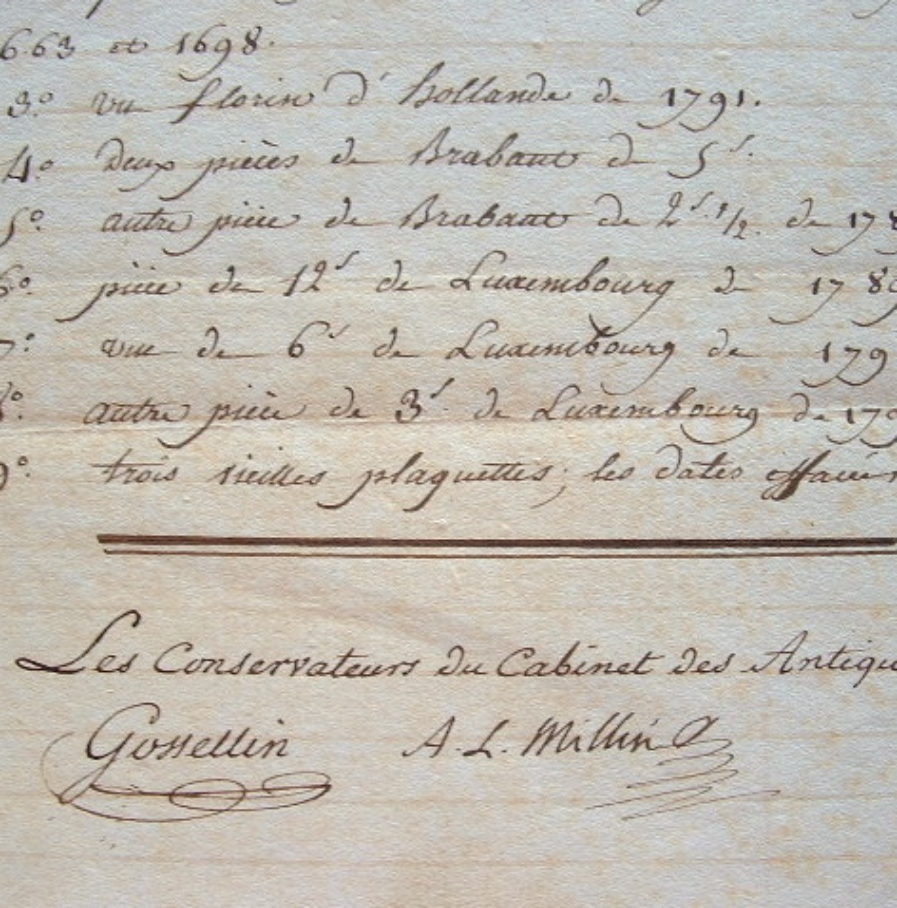 663 et 1698.
3º. un florin d'hollande de 1791.
4º. Deux pièces de Brabant de 5ˢ.
5º. autre pièce de Brabant de 2ˢ.½. de 178
6º. pièce de 12ˢ de Luxembourg de 178
7º. une de 6ˢ de Luxembourg de 179
8º. autre pièce de 3ˢ. de Luxembourg de 179
9º. trois vieilles plaquettes; les dates effacées
Les Conservateurs du Cabinet des Antiqu
Gossellin A. L. Millin